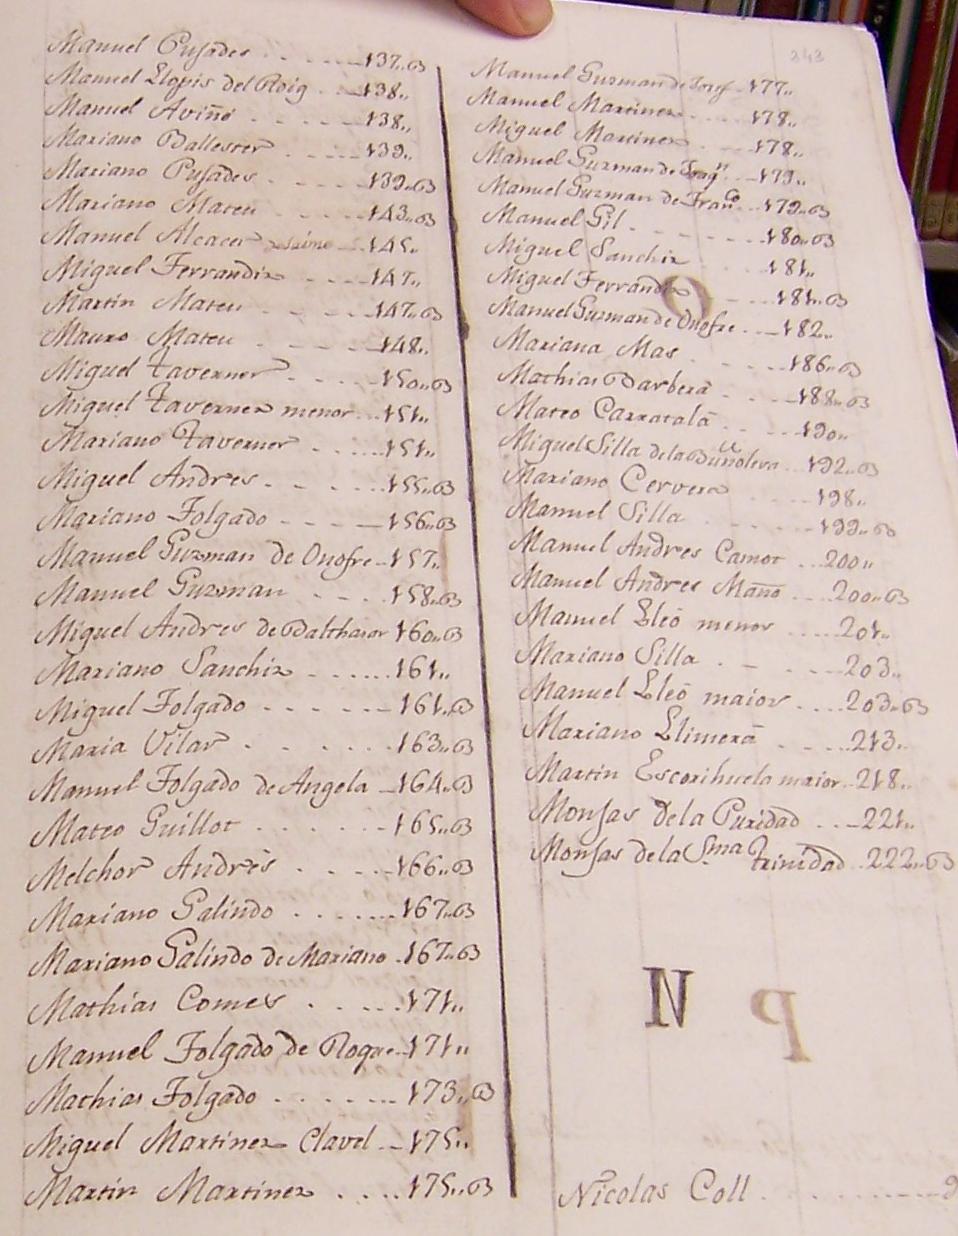 343
Manuel Pusades ..... 137..B
Manuel Llopis del Roig .. 138..
Manuel Aviñó ..... 138..
Mariano Ballester .... 139..
Mariano Pusades .... 139..B
Mariano Mateu .... 143..B
Manuel Alcacer 145..
Miguel Ferrandiz .... 147..
Martin Mateu .... 147..B
Mauro Mateu .... 148..
Miguel Taverner .... 150..B
Miguel Taverner menor .. 151..
Mariano Taverner .... 151..
Miguel Andres .... 155..B
Mariano Folgado .... 156..B
Manuel Guzman de Onofre .. 157..
Manuel Guzman .... 158..B
Miguel Andres de Balthasar 160..B
Mariano Sanchiz ...... 161..
Miguel Folgado ...... 161..B
Maria Vilar ..... 163..B
Manuel Folgado de Angela .. 164..B
Mateo Guillot ..... 165..B
Melchor Andrès ..... 166..B
Mariano Galindo ...... 167..B
Mariano Galindo de Mariano . 167..B
Mathias Comes ..... 171..
Manuel Folgado de Roque .. 171..
Mathias Folgado ....... 173..B
Miguel Martinez Clavel .. 175..
Martin Martinez .... 175..B
Manuel Guzman de Josef .. 177..
Manuel Martinez .... 178..
Miguel Martinez ... 178..
Manuel Guzman de 179..
Manuel Guzman de Franco ... 179..B
Manuel Gil ...... 180..B
Miguel Sanchiz ... 181..
Miguel Ferrandiz ... 181..B
Manuel Guzman de Onofre ... 182..
Mariana Mas .... 186..B
Mathias Barberà .... 188..B
Mateo Carratalà .... 190..
Miguel Silla de la Buñolera .. 192..B
Mariano Cervera .... 198..
Manuel Silla ..... 199..B
Manuel Andres Camot ... 200..
Manuel Andres Maño ... 200..B
Manuel Lleó menor ..... 201..
Mariano Silla ..... 203..
Manuel Lleó maior .... 203..B
Mariano Llimerà .... 213..
Martin Escorihuela maior .. 218..
Monjas de la Puridad ... 221..
Monjas de la Sma Trinidad .. 222..B
N
Nicolas Coll ........... 9